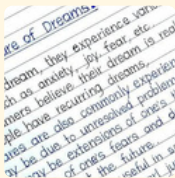 ure of Dreams:
dream, they experience vario
ch as anxiety, joy, fear, etc.
mers believe their dream is real
ple have recurring dreams,
ares are also commonly experien
y be due to unresolved problem
ay be extensions of one's th
of one's fears and d
the future.
useful in s